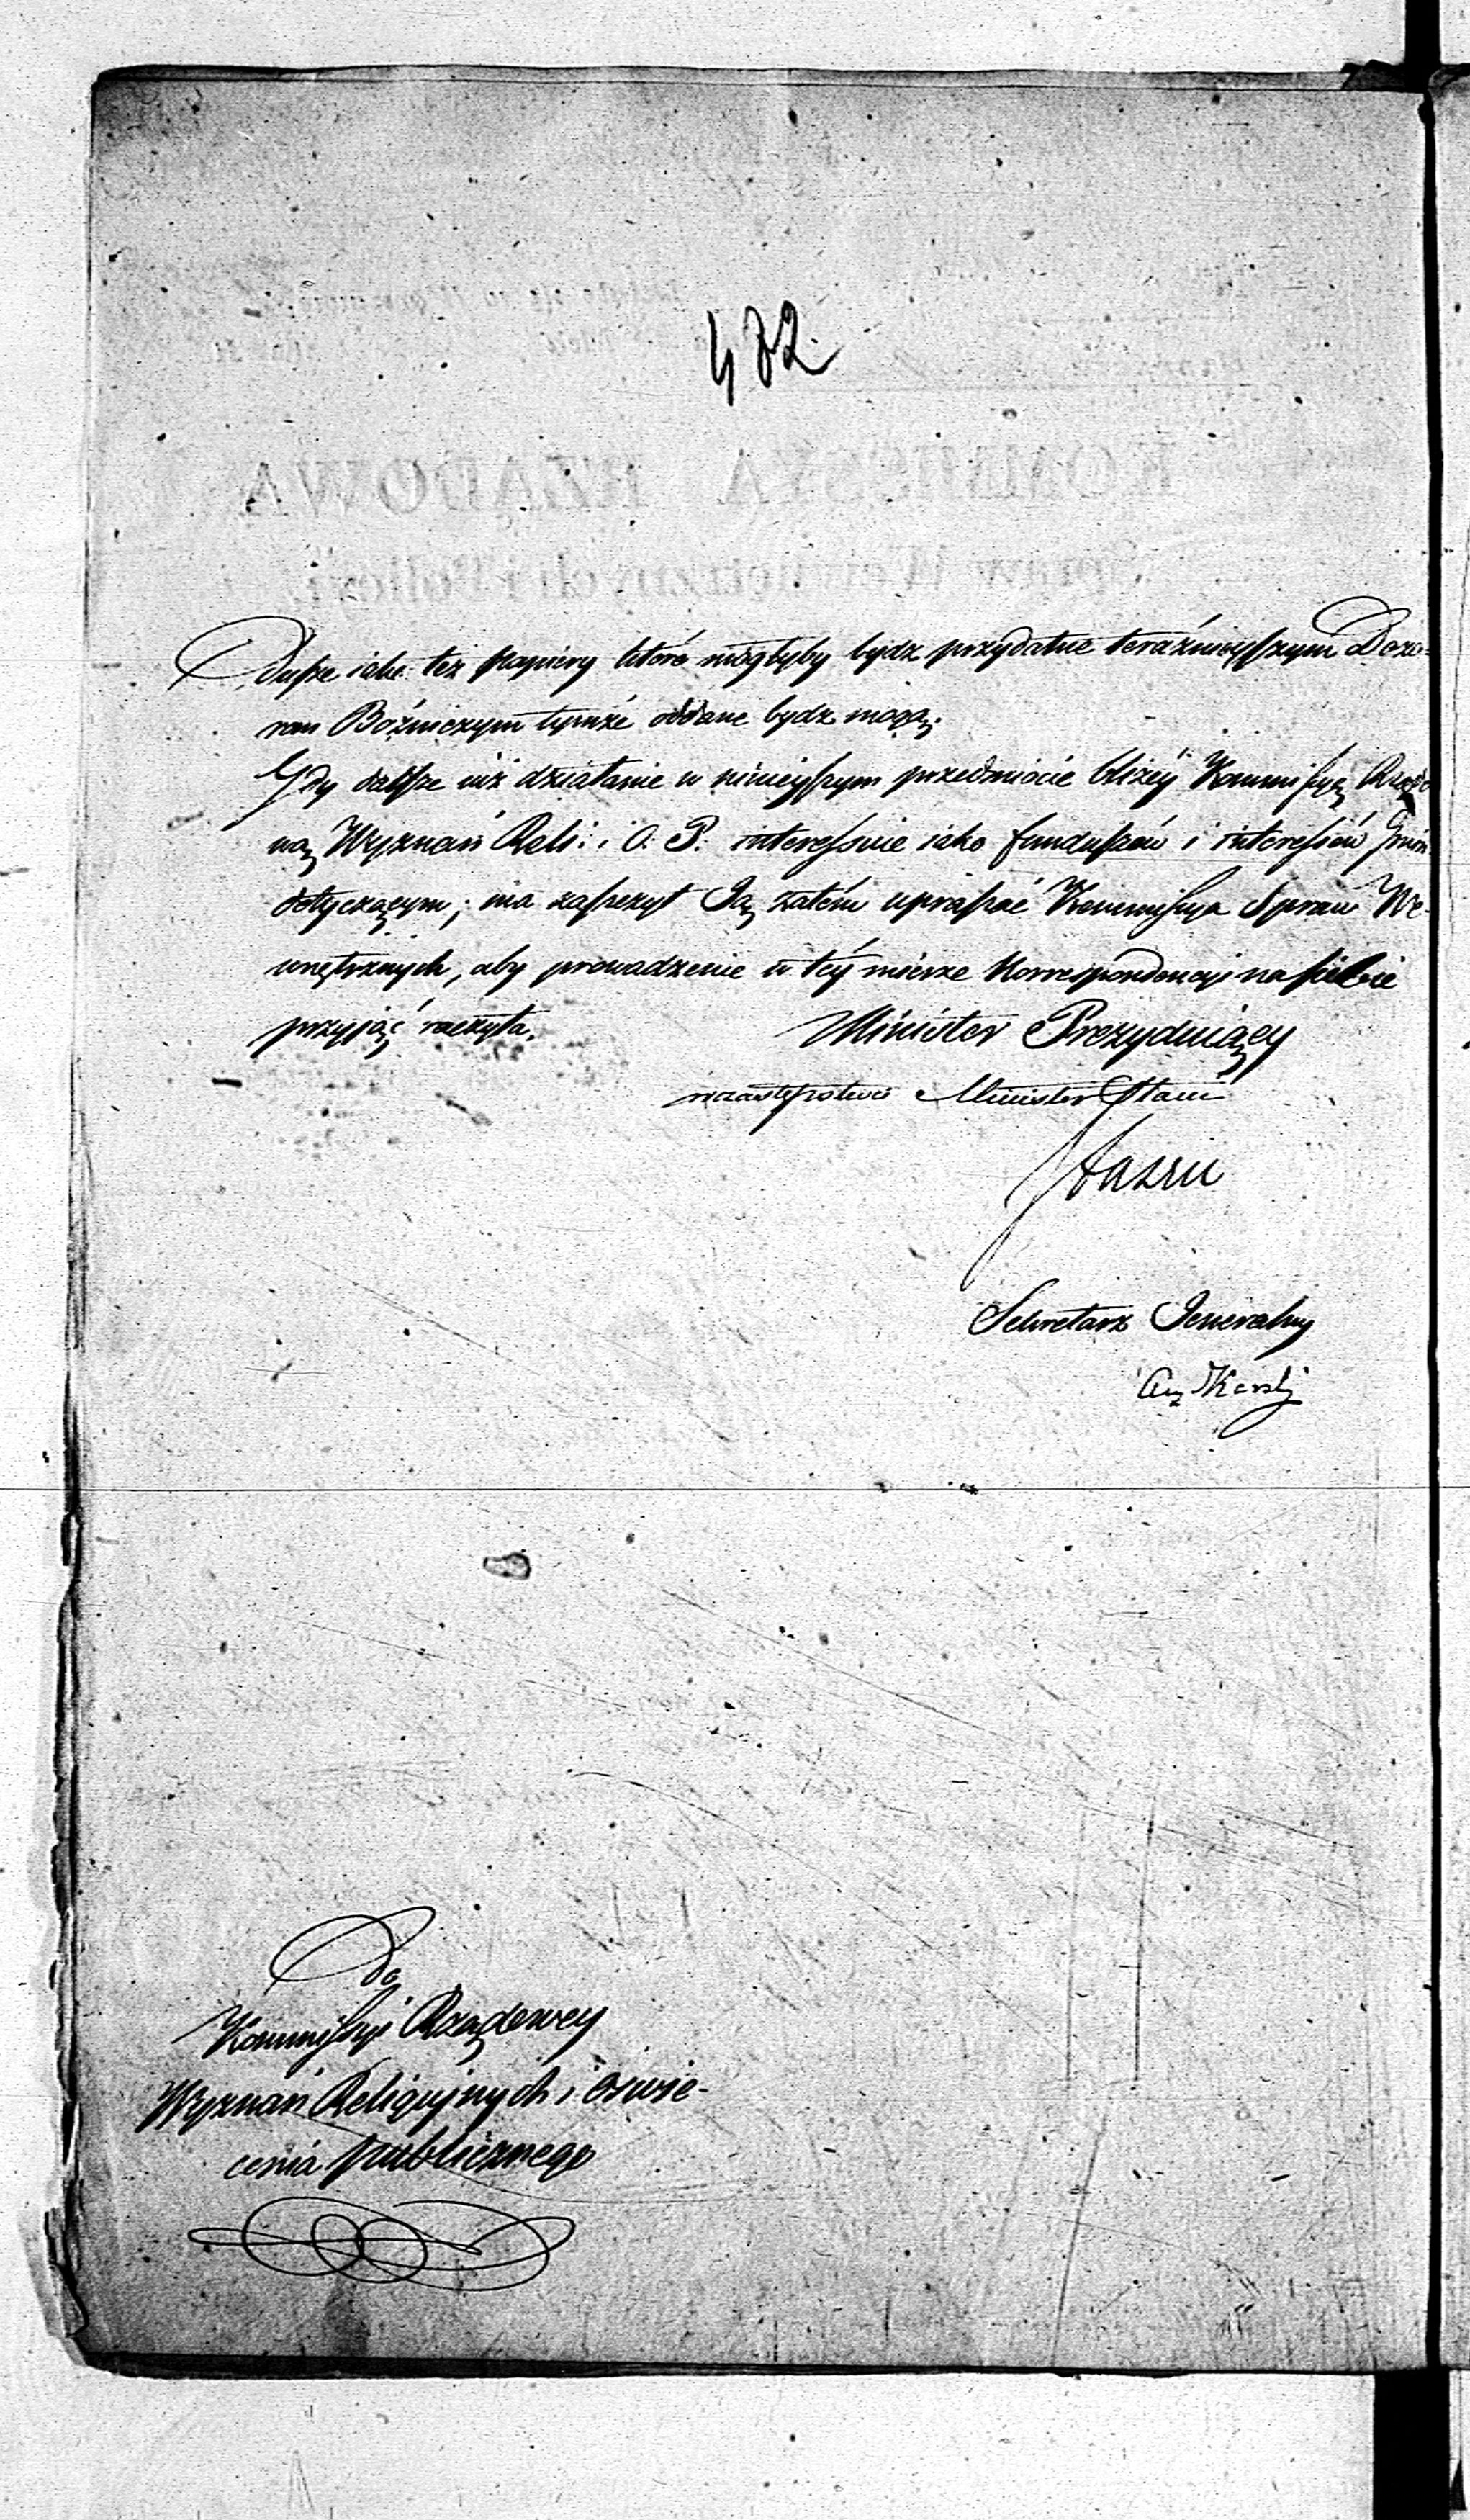 482.
dusze iako też papiery które mogłyby bydz przydatne teraźnieyszym Dozo-
rom Bóżniczym tymże oddane bydz mogą.
Gdy dalsze już działanie w ninieyszym przedmiocie bliżéy Kommissyą Rządo
wą Wyznań Reli: i O. P. interessuie iako funduszów i interessów Gmin
dotyczącym; ma zaszczyt Ją zatém upraszać Kommissya Spraw We-
wnętrznych, aby prowadzenie w téy mierze Korrespondencyi na siebie
przyjąć raczyła.
Minister Prezyduiący
w zastępstwie Minister Stanu
Staszic
Sekretarz Jeneralny
Aug Karski
Do
Kommissyi Rządowey
Wyznań Religijnych i Oświe-
cenia publicznego